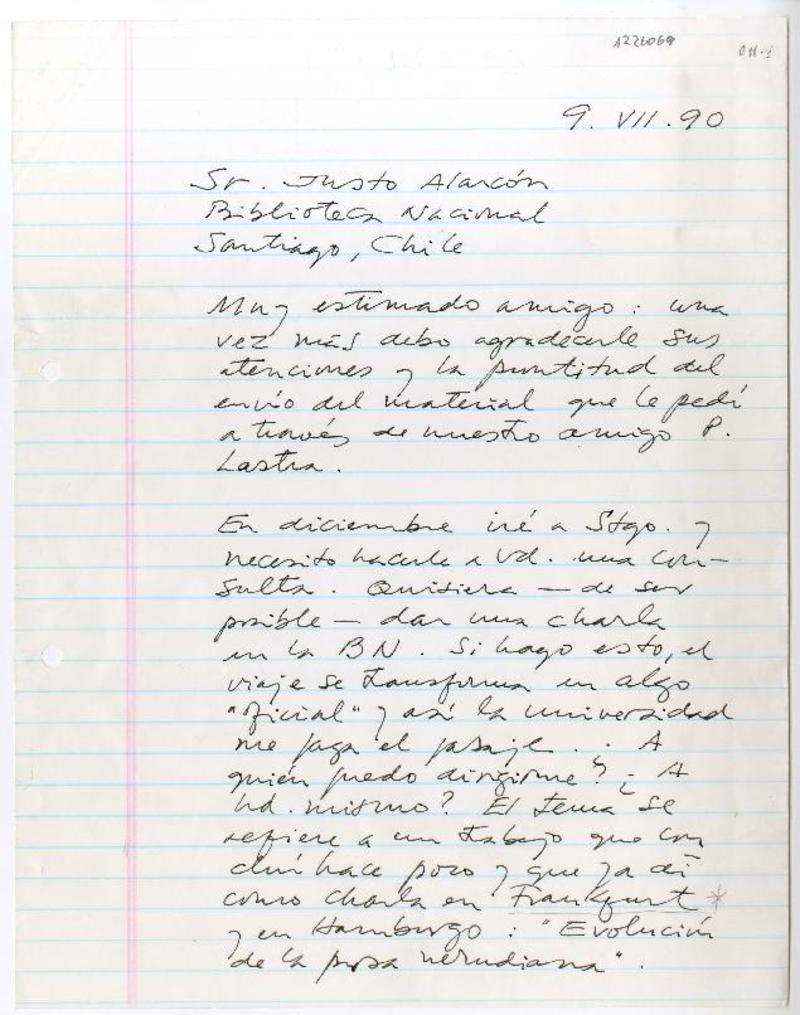 A226069
9. VII. 90
Sr. Justo Alarcón
Biblioteca Nacional
Santiago, Chile
Muy estimado amigo: una
vez más debo agradecerle sus
atenciones y la prontitud del
envío del material que le pedí
a través de nuestro amigo P.
Lastra.
En diciembre iré a Stgo. y
necesito hacerle a Ud. una con-
sulta. Quisiera — de ser
posible — dar una charla
en la BN. Si hago esto, el
viaje se transforma en algo
"oficial" y así la universidad
me paga el pasaje. ¿ A
quién puedo dirigirme? ¿ A
Ud. mismo? El tema se
refiere a un trabajo que con
cluí hace poco y que ya dí
como charla en Frankfurt *
y en Hamburgo : "Evolución
de la prosa nerudiana".